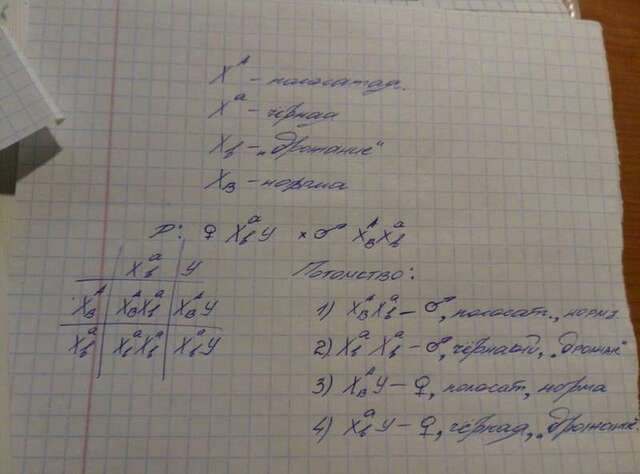 Xᴬ – полосатая.
Xᵃ – чёрная
X_b – „дрожание"
X_B – норма
P: ♀ X_bᵃ У × ♂ X_Bᴬ X_bᵃ
X_bᵃ У
X_Bᴬ X_Bᴬ X_bᵃ X_Bᴬ У
X_bᵃ X_bᵃ X_bᵃ X_bᵃ У
Потомство:
1) X_Bᴬ X_bᵃ – ♂, полосат., норма
2) X_bᵃ X_bᵃ – ♂, чёрный, „дрожан"
3) X_Bᴬ У – ♀, полосат, норма
4) X_bᵃ У – ♀, чёрная, „дрожание"